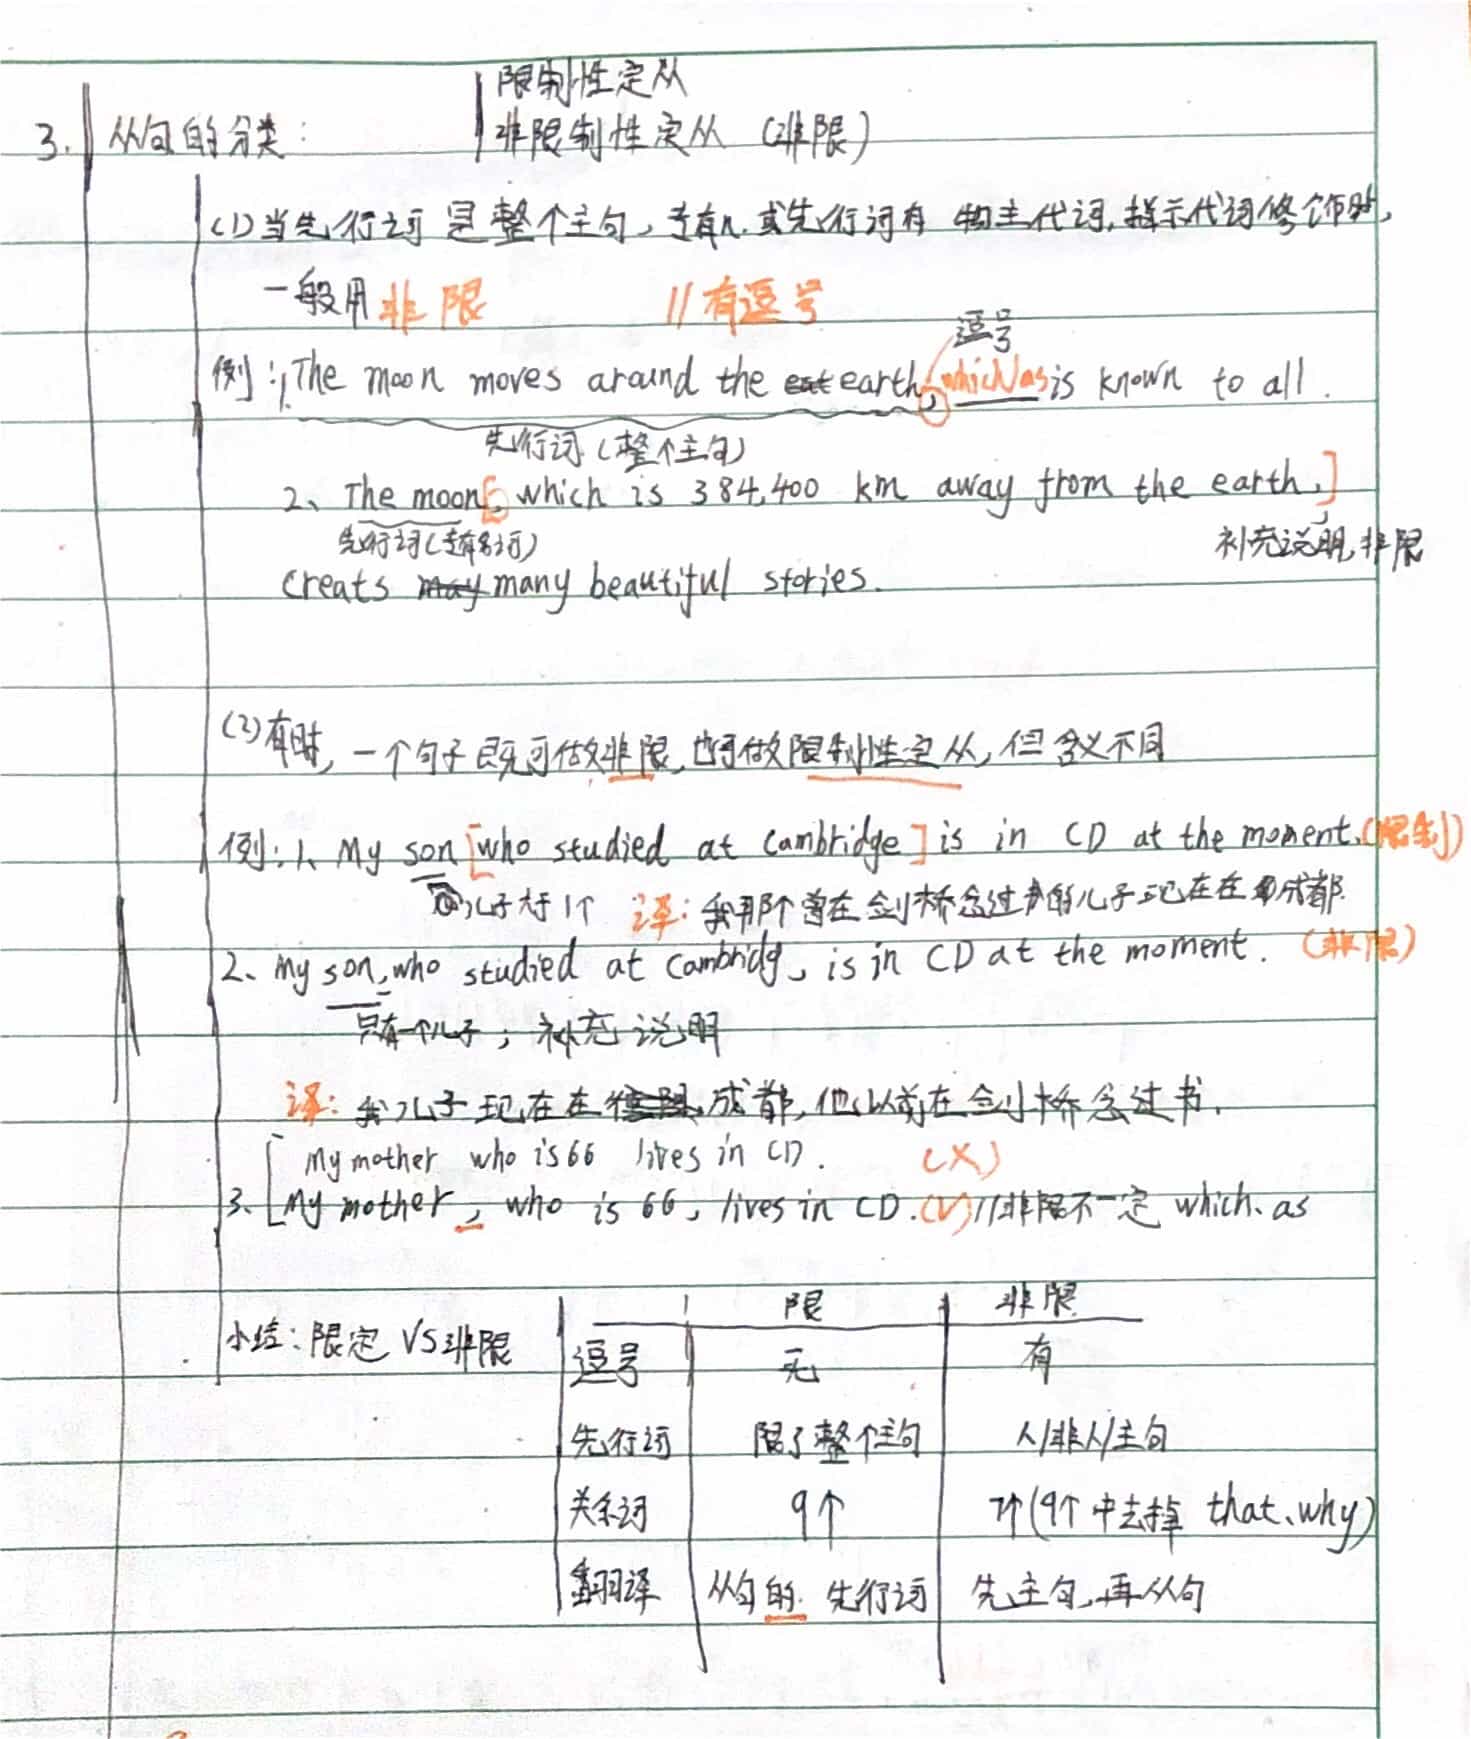 限制性定从
3. 从句的分类: 非限制性定从 (非限)
(1)当先行词是整个主句,专有n.或先行词有物主代词,指示代词修饰时,
一般用非限 //有逗号
逗号
例:1.The moon moves around the earth, which/as is known to all.
先行词(整个主句)
2、The moon[, which is 384,400 km away from the earth,]
先行词(专有名词) 补充说明,非限
creats many beautiful stories.
(2)有时,一个句子既可做非限,也可做限制性定从,但含义不同
例:1、My son [who studied at Cambridge] is in CD at the moment.(限制)
儿子大于1个 译:我那个曾在剑桥念过书的儿子现在在成都.
2、My son,who studied at Cambridg, is in CD at the moment. (非限)
只有一个儿子;补充说明
译:我儿子现在在成都,他以前在剑桥念过书.
My mother who is 66 lives in CD. (X)
3.[My mother, who is 66, lives in CD.(√)//非限不一定 which、as
限 非限
小结:限定 VS 非限 逗号 无 有
先行词 限了整个主句 人/非人/主句
关系词 9个 7个(9个中去掉 that、why)
翻译 从句的 先行词 先主句,再从句